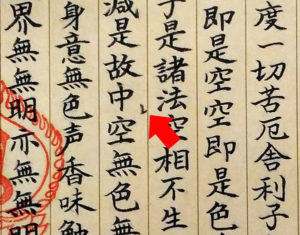 度一切苦厄舍利子
即是空空即是色
子是諸法空相不生
減是故中空無色無
身意無色声香味触
界無無明亦無無明